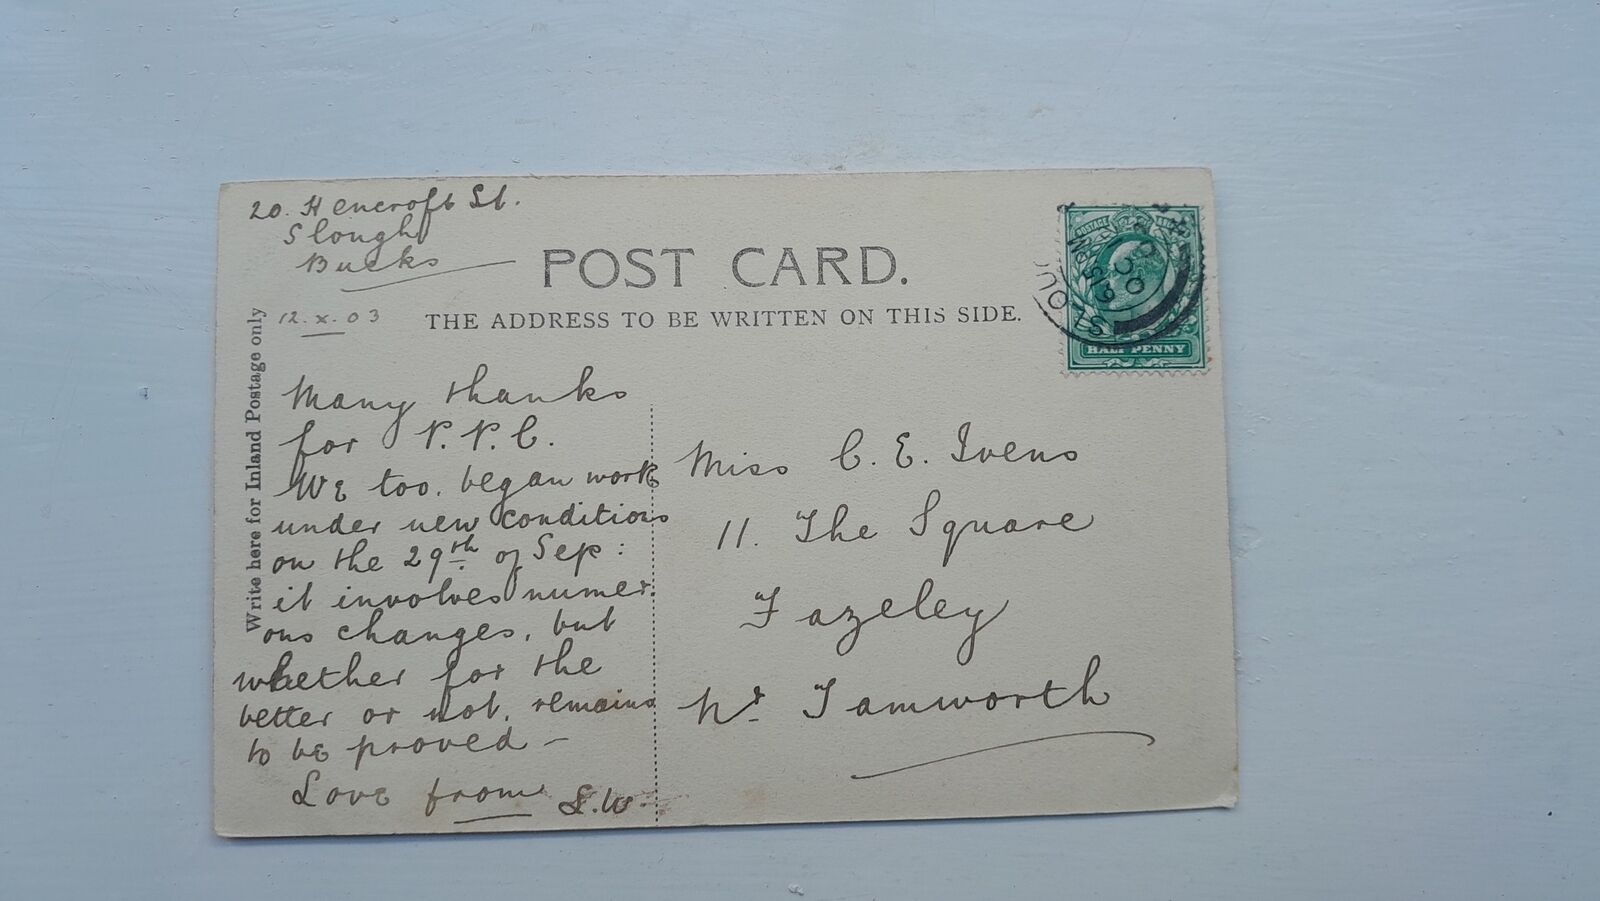 20. Hencroft St.
Slough
Bucks
12.x.03
POST CARD.
THE ADDRESS TO BE WRITTEN ON THIS SIDE.
Write here for Inland Postage only
Many thanks
for P.P.C.
We too, began work
under new conditions
on the 29th of Sep:
it involves numer-
ous changes, but
whether for the
better or not, remains
to be proved –
Love from L.W.
POSTAGE
HALF PENNY
SLOU
OC
Miss C. E. Ivens
11. The Square
Fazeley
Nr. Tamworth